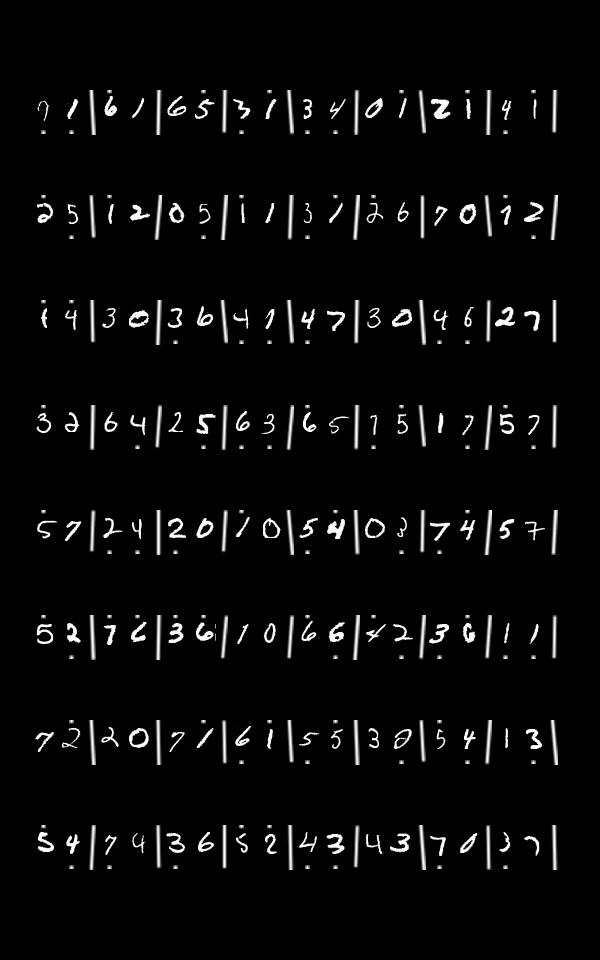 7 1 | 6 1 | 6 5 | 3 1 | 3 4 | 0 1 | 2 1 | 4 1 |
2 5 | 1 2 | 0 5 | 1 1 | 3 1 | 2 6 | 7 0 | 1 2 |
1 4 | 3 0 | 3 6 | 4 1 | 4 7 | 3 0 | 4 6 | 2 7 |
3 2 | 6 4 | 2 5 | 6 3 | 6 5 | 1 5 | 1 7 | 5 7 |
5 7 | 2 4 | 2 0 | 1 0 | 5 4 | 0 3 | 7 4 | 5 7 |
5 2 | 7 6 | 3 6 | 1 0 | 6 6 | 4 2 | 3 6 | 1 1 |
7 2 | 2 0 | 7 1 | 6 1 | 5 5 | 3 2 | 5 4 | 1 3 |
5 4 | 7 4 | 3 6 | 5 2 | 4 3 | 4 3 | 7 0 | 3 7 |